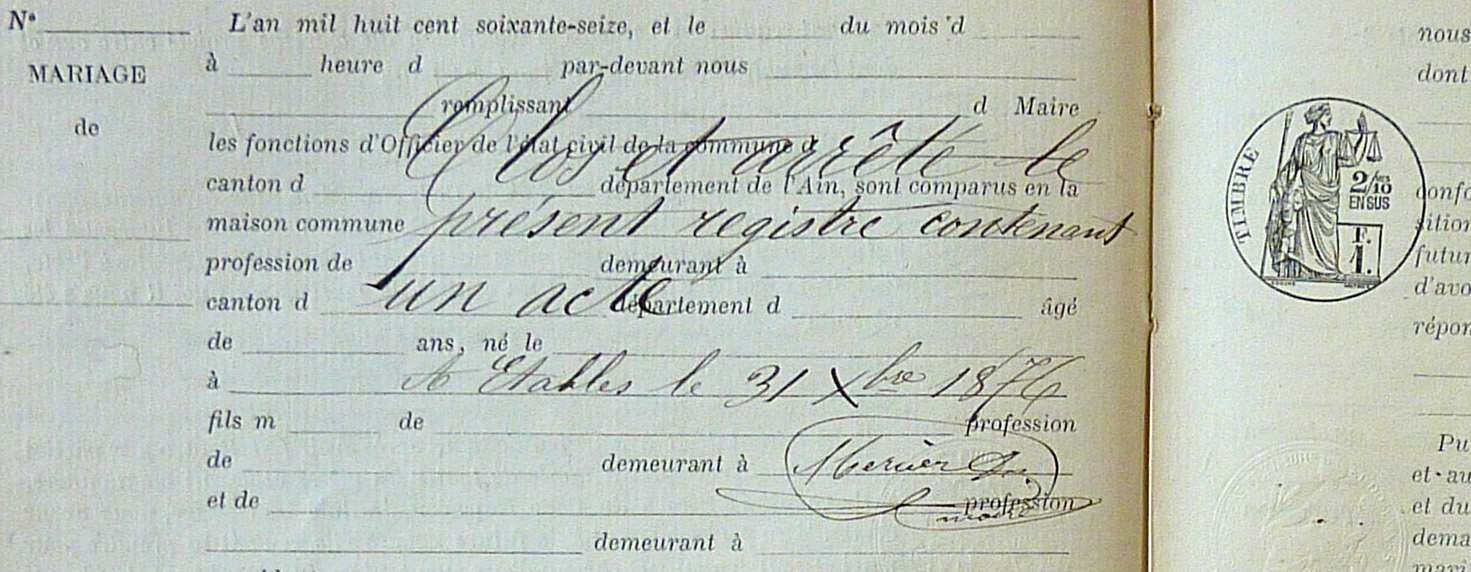 N° L'an mil huit cent soixante-seize, et le du mois d
MARIAGE
à heure d par-devant nous
de
remplissant d Maire
les fonctions d'Officier de l'état civil de la commune d
Clos et arrêté le
canton d département de l'Ain, sont comparus en la
maison commune
présent registre contenant
profession de demeurant à
canton d département d âgé
un acte
de ans, né le
à
A Etables le 31 Xbre 1876
fils m de profession
de demeurant à
et de profession
maire
demeurant à
TIMBRE
2/10
EN SUS
F.
1.
nous
dont
confo
sition
futur
d'avo
répon
Pu
et au
et du
dema
mari